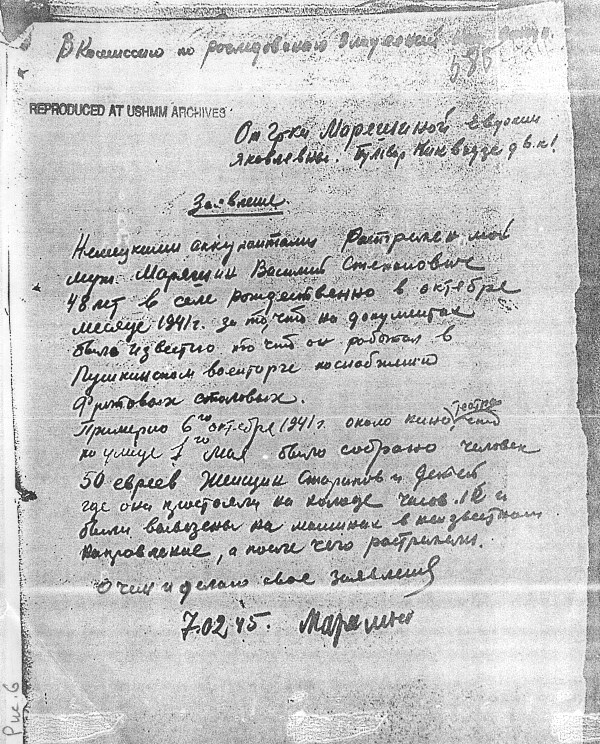 В Комиссию по расследованию
585
REPRODUCED AT USHMM ARCHIVES
От г-ки Марешиной Евдокии
Яковлевны. Бульвар Киквидзе д 6. к 1.
Заявление
Немецкими аккупантами Растрелен мой
муж. Марешин Василий Степанович
48 лет в селе Рождественно в октябре
месяце 1941 г. за то, что на документах
было известно то что он работал в
Пушкинском военторге по снабжению
фронтовых столовых.
Примерно 6го октября 1941 г. около кино театра
по улице 1го Мая было собрано человек
50 евреев Женщин Стариков и Детей
где они простояли на холоде часов и
были вывезены на машинах в неизвестном
направление, а после чего растреляли.
О чем и делаю свое заявление
7.02.45. Марешина
Рис. 6